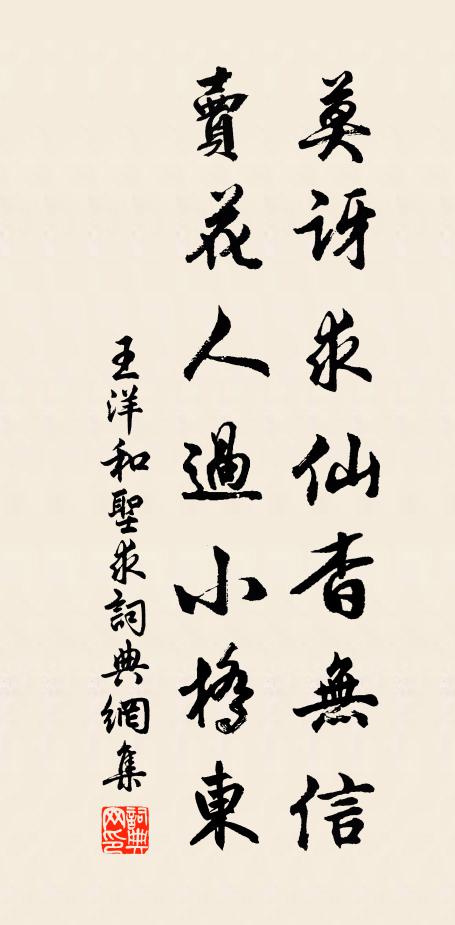 莫訝求仙杳無信
賣花人過小橋東
王洋和聖求詞典網集
詞典網印